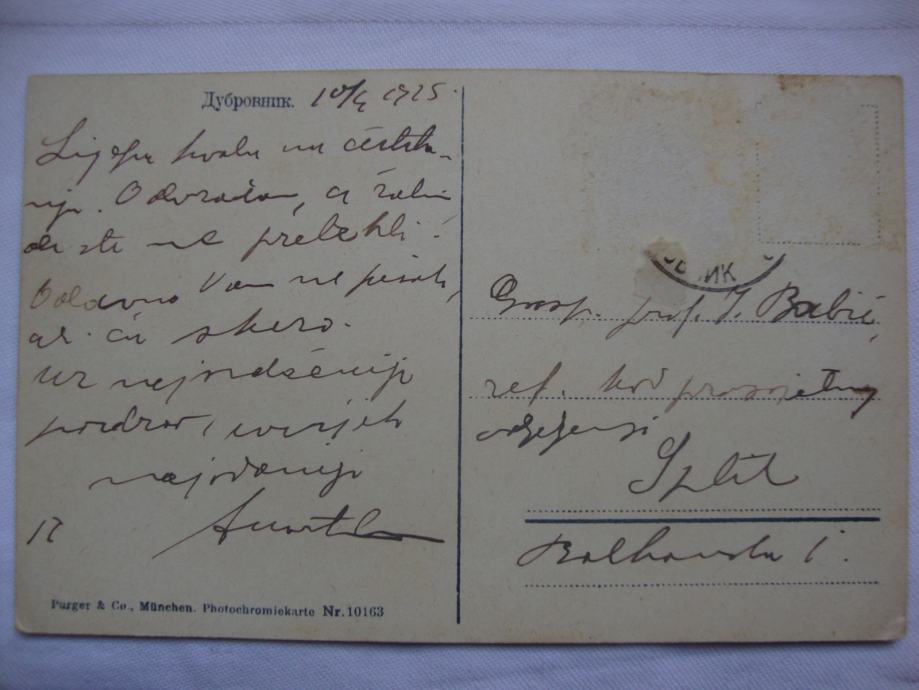 Дубровник. 10/4 1925.
Lijepa hvala na čestita-
nju. Odvraćam, a žalim
da ste ne prelehli!
Odavno Vam ne pisah,
ali ću skoro.
Uz najsrdačnije
pozdrave, uvijek
najodaniji
Gosp. prof. J. Babić,
ref. kod prosvjetnog
odjeljenja
Split
I.
Purger & Co., München. Photochromiekarte Nr. 10163